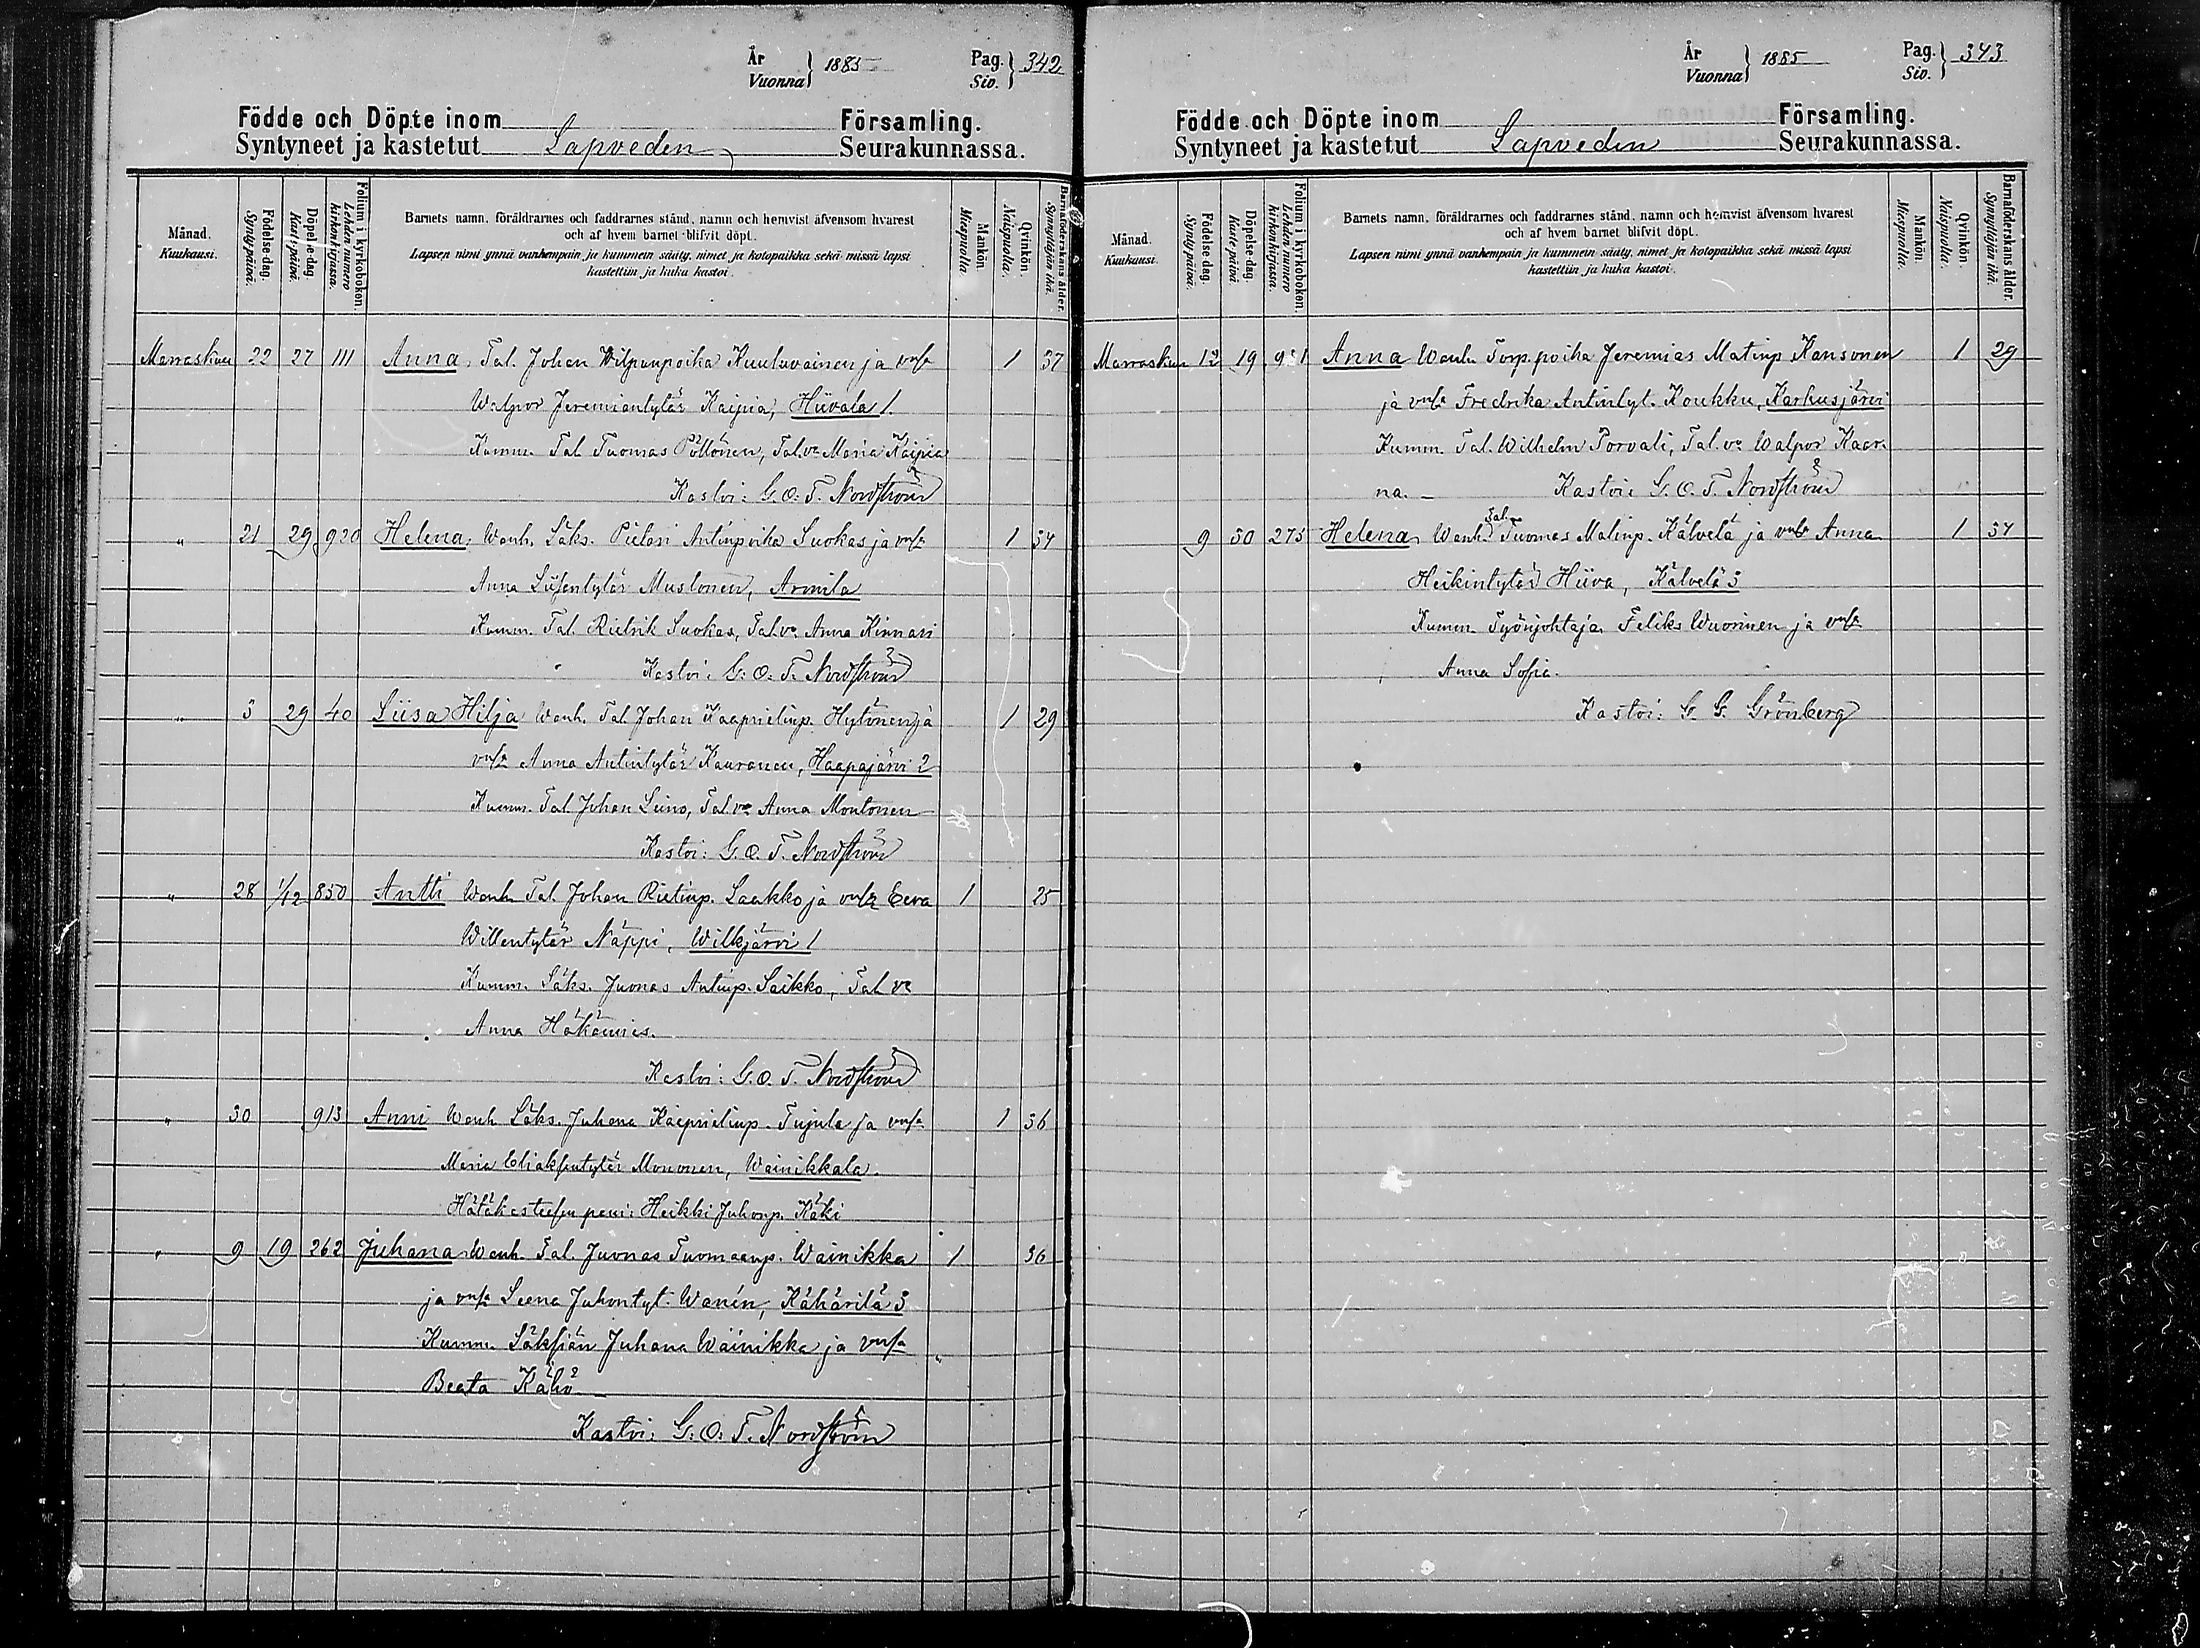 År Vuonna } 1885 Pag. Siv. } 342
Födde och Döpte inom Församling.
Syntyneet ja kastetut Lapveden Seurakunnassa.
Månad. Kuukausi.
Födelse-dag. Syntypäivä.
Döpelse-dag. Kastepäivä.
Folium i kyrkoboken. Lehden numero kirkonkirjassa.
Barnets namn, föräldrarnes och faddrarnes stånd, namn och hemvist äfvensom hvarest
och af hvem barnet blifvit döpt.
Lapsen nimi ynnä vanhempain ja kummein sääty, nimet ja kotopaikka sekä missä lapsi
kastettiin ja kuka kastoi.
Mankön. Miespuolia.
Qvinkön. Naispuolia.
Barnaföderskans ålder. Synnyttäjän ikä.
Marraskuu 22 27 111 Anna, Tal. Johan Vilpunpoika Kuuluvainen ja vmsa 1 37
Walpor Jeremiantytär Kaipia, Hiivala 1.
Kumm. Tal. Tuomas Pöllönen, Tal.va Maria Kaipia
Kastoi: G. O. T. Nordström
" 21 29 920 Helena, Wanh. Läks. Pietari Antinpoika Suokas ja vmsa 1 34
Anna Liisantytär Mustonen, Armila
Kumm. Tal. Rietrik Suokas, Tal.va Anna Kinnari
Kastoi: G. O. T. Nordström
" 3 29 40 Siisa Hilja Wanh. Tal. Johan Kaaprielinp. Hytönen ja 1 29
vmsa Anna Antintytär Kauranen, Haapajärvi 2
Kumm. Tal. Johan Leino, Tal.va Anna Montonen
Kastoi: G. O. T. Nordström
" 28 1/12 850 Antti Wanh. Tal. Johan Rietinp. Laakko ja vmsa Eeva 1 25
Willentytär Näppi, Wilkjärvi 1
Kumm. Läks. Juonas Antinp. Saikko, Tal. va
Anna Häkämies.
Kastoi: G. O. T. Nordström
" 30 913 Anni Wanh. Läks. Juhana Kaaprielinp. Tujula ja vmsa 1 36
Maria Eliaksentytär Mononen, Wainikkala.
Hätäkasteesen pani: Heikki Juhonp. Käki
" 9 19 262 Juhana Wanh. Tal. Juonas Tuomaanp. Wainikka 1 36
ja vmsa Leena Juhontyt. Wanén, Kähärilä 3
Kumm. Läksiän Juhana Wainikka ja vmsa
Beata Kähö
Kastoi: G. O. T. Nordström
År Vuonna } 1885 Pag. Siv. } 343
Födde och Döpte inom Församling.
Syntyneet ja kastetut Lapveden Seurakunnassa.
Månad. Kuukausi.
Födelse dag. Syntypäivä.
Döpelse dag. Kastepäivä.
Folium i kyrkoboken. Lehden numero kirkonkirjassa.
Barnets namn, föräldrarnes och faddrarnes stånd, namn och hemvist äfvensom hvarest
och af hvem barnet blifvit döpt.
Lapsen nimi ynnä vanhempain ja kummein sääty, nimet ja kotopaikka sekä missä lapsi
kastettiin ja kuka kastoi.
Mankön. Miespuolia.
Qvinkön. Naispuolia.
Barnaföderskans ålder. Synnyttäjän ikä.
Marraskuu 12 19 Anna Wanh. Torp.poika Jeremias Matinp Kansonen 1 29
ja vmsa Fredrika Antintyt. Koukku, Karhusjärvi
Kumm. Tal. Wilhelm Torvali, Tal. va Walpor Kaar-
na. – Kastoi: G. O. T. Nordström
9 30 275 Helena, Wanh. Tal. Tuomas Matinp. Kälvelä ja vmsa Anna 1 34
Heikintytär Hiiva, Kälvelä 3
Kumm. Työnjohtaja Feliks Wuorinen ja vmsa
Anna Sofia.
Kastoi: G. G. Grönberg